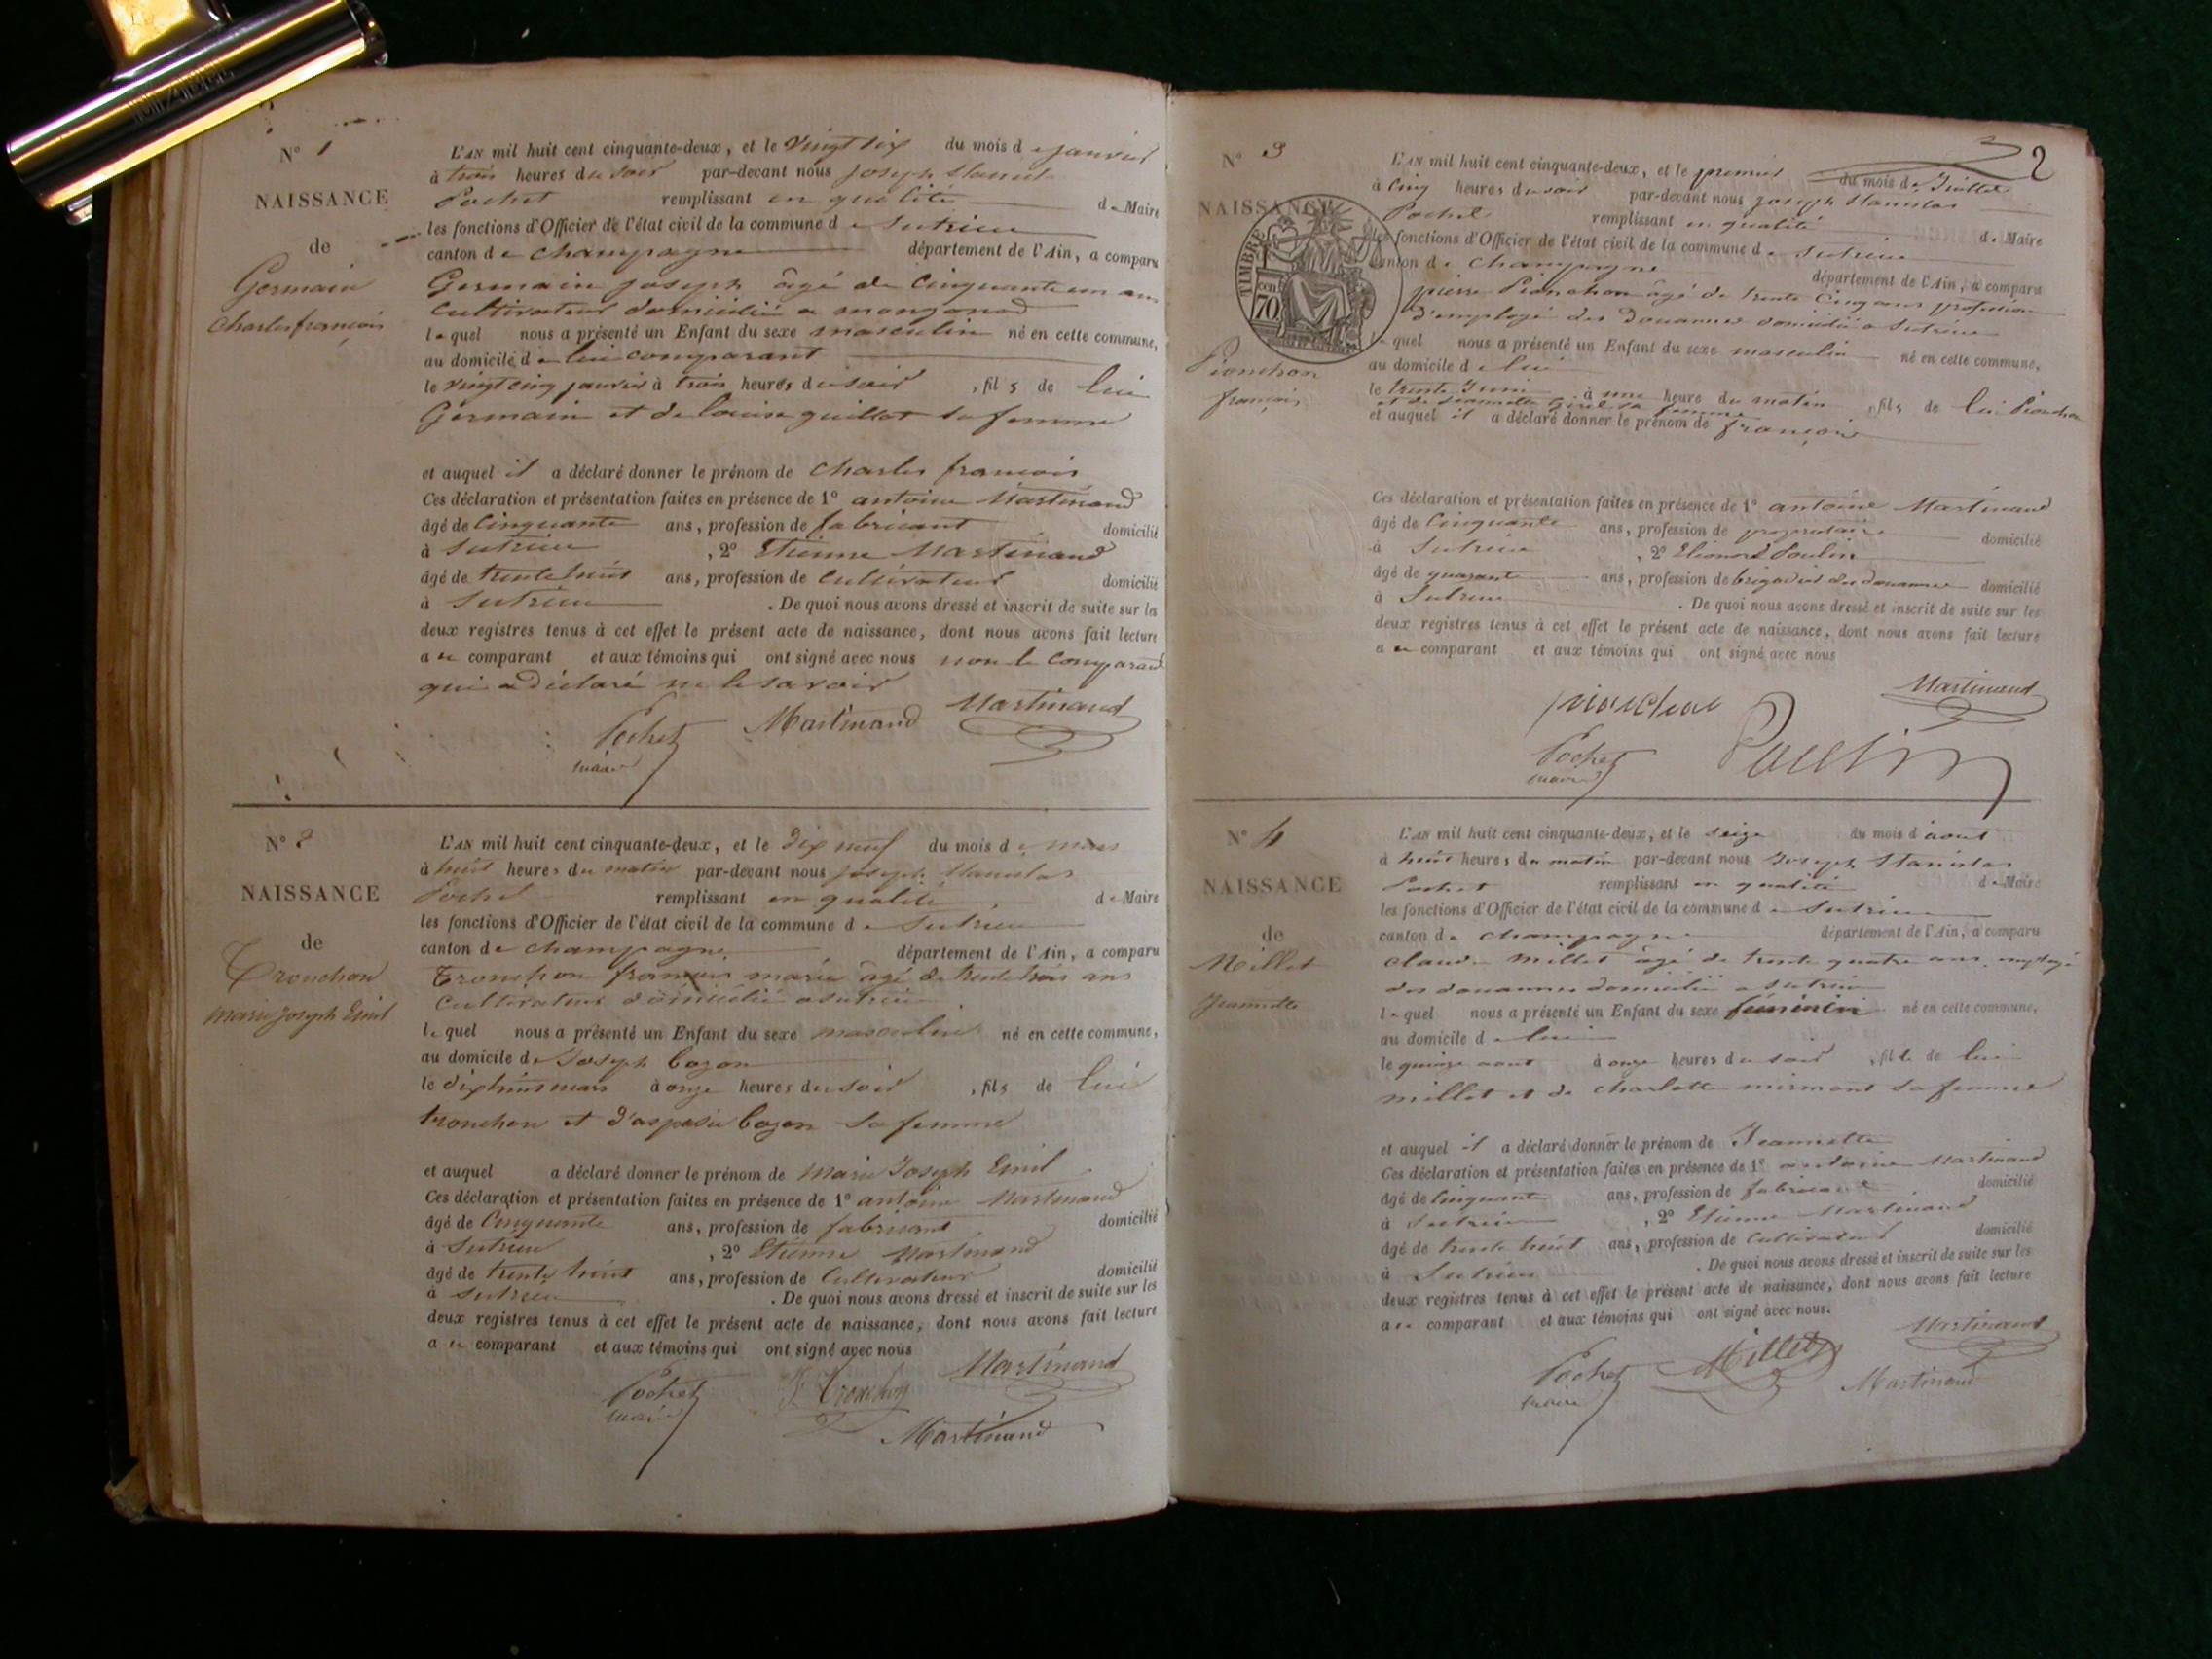 N° 1
NAISSANCE
de
Germain
Charles françois
L'AN mil huit cent cinquante-deux, et le vingt six du mois de janvier
à trois heures du soir par-devant nous joseph Stanislas
Pochet remplissant en qualité de Maire
les fonctions d'Officier de l'état civil de la commune de Sutrieu
canton de champagne département de l'Ain, a comparu
Germain joseph âgé de Cinquante un ans
Cultivateur domicilié a
lequel nous a présenté un Enfant du sexe masculin né en cette commune,
au domicile de lui comparant
le vingt cinq janvier à trois heures du soir, fils de lui
Germain et de louise guillot sa femme
et auquel il a déclaré donner le prénom de Charles françois
Ces déclaration et présentation faites en présence de 1° antoine Martinand
âgé de Cinquante ans, profession de fabricant domicilié
à Sutrieu, 2° Etienne Martinand
âgé de trente huit ans, profession de Cultivateur domicilié
à Sutrieu. De quoi nous avons dressé et inscrit de suite sur les
deux registres tenus à cet effet le présent acte de naissance, dont nous avons fait lecture
au comparant et aux témoins qui ont signé avec nous non le Comparant
qui a déclaré ne le savoir
Pochet Martinand Martinand
maire
N° 2
NAISSANCE
de
Tronchon
marie joseph Emil
L'AN mil huit cent cinquante-deux, et le dix neuf du mois de mars
à huit heures du matin par-devant nous joseph Stanislas
Pochet remplissant en qualité de Maire
les fonctions d'Officier de l'état civil de la commune de Sutrieu
canton de champagne département de l'Ain, a comparu
Tronchon françois marie âgé de trente trois ans
Cultivateur domicilié a sutrieu
lequel nous a présenté un Enfant du sexe masculin né en cette commune,
au domicile de Joseph bozon
le dix huit mars à onze heures du soir, fils de lui
tronchon et d'aspasie bozon sa femme
et auquel a déclaré donner le prénom de Marie Joseph Emil
Ces déclaration et présentation faites en présence de 1° antoine Martinand
âgé de Cinquante ans, profession de fabricant domicilié
à Sutrieu, 2° Etienne Martinand
âgé de trente huit ans, profession de Cultivateur domicilié
à sutrieu. De quoi nous avons dressé et inscrit de suite sur les
deux registres tenus à cet effet le présent acte de naissance, dont nous avons fait lecture
au comparant et aux témoins qui ont signé avec nous
Pochet Tronchon Martinand
maire Martinand
2
N° 3
NAISSANCE
TIMBRE
70
Pionchon
françois
L'AN mil huit cent cinquante-deux, et le premier du mois de Juillet
à Cinq heures du soir par-devant nous joseph Stanislas
Pochet remplissant en qualité de Maire
les fonctions d'Officier de l'état civil de la commune de Sutrieu
canton de Champagne département de l'Ain, a comparu
pierre Pionchon âgé de trente Cinq ans profession
d'employé des Douannes domicilié a Sutrieu
lequel nous a présenté un Enfant du sexe masculin né en cette commune,
au domicile de lui
le trente Juin à une heure du matin, fils de lui Pionchon
et de jeannette sa femme
et auquel il a déclaré donner le prénom de françois
Ces déclaration et présentation faites en présence de 1° antoine Martinand
âgé de Cinquante ans, profession de propriétaire domicilié
à Sutrieu, 2° Eleonord Poulin
âgé de quarante ans, profession de brigadier des douannes domicilié
à Sutrieu. De quoi nous avons dressé et inscrit de suite sur les
deux registres tenus à cet effet le présent acte de naissance, dont nous avons fait lecture
au comparant et aux témoins qui ont signé avec nous
Martinand
Pochet
maire
N° 4
NAISSANCE
de
Millet
Jeannette
L'AN mil huit cent cinquante-deux, et le seize du mois d'aout
à huit heures du matin par-devant nous Joseph Stanislas
Pochet remplissant en qualité de Maire
les fonctions d'Officier de l'état civil de la commune de Sutrieu
canton de champagne département de l'Ain, a comparu
claude millet âgé de trente quatre ans employé
des douannes domicilié a sutrieu
lequel nous a présenté un Enfant du sexe féminin né en cette commune,
au domicile de lui
le quinze aout à onze heures du soir, fille de lui
millet et de charlotte mermont sa femme
et auquel il a déclaré donner le prénom de Jeannette
Ces déclaration et présentation faites en présence de 1° antoine Martinand
âgé de Cinquante ans, profession de fabricant domicilié
à Sutrieu, 2° Etienne Martinand
âgé de trente huit ans, profession de Cultivateur domicilié
à Sutrieu. De quoi nous avons dressé et inscrit de suite sur les
deux registres tenus à cet effet le présent acte de naissance, dont nous avons fait lecture
au comparant et aux témoins qui ont signé avec nous.
Martinand
Pochet Millet Martinand
maire